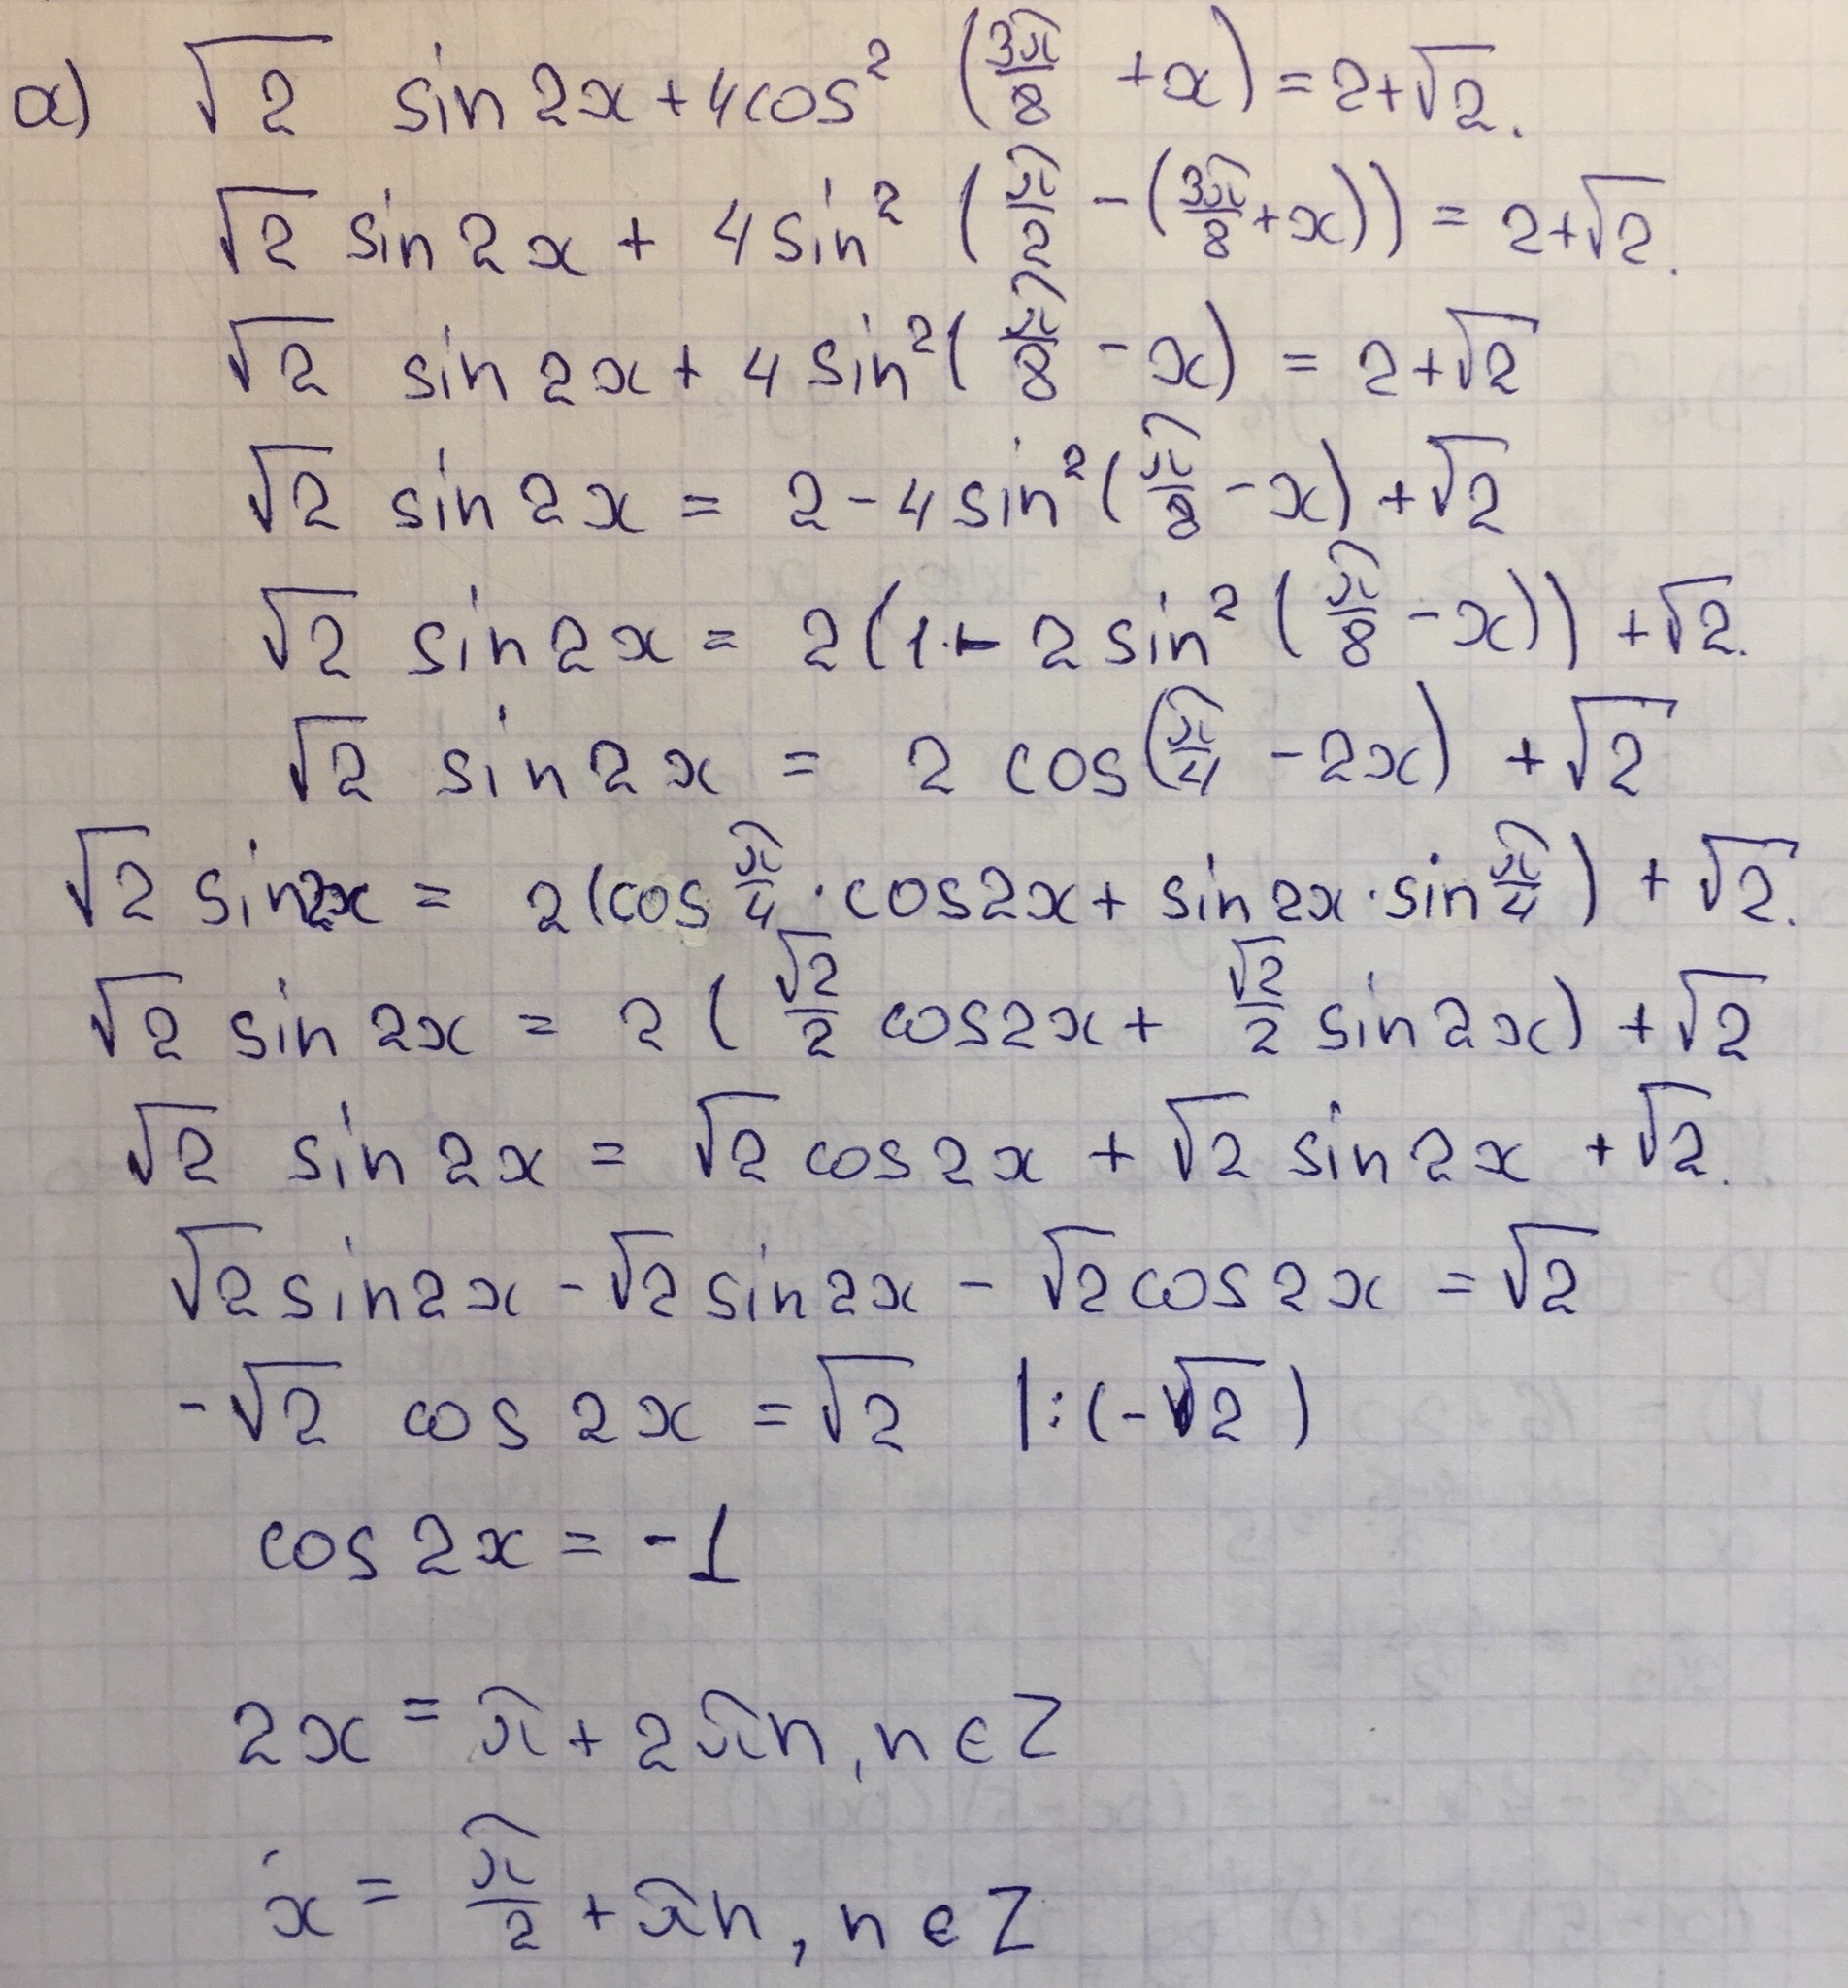 а) √2 sin 2x + 4cos² (3π/8 + x) = 2+√2.
√2 sin 2x + 4 sin² (π/2 - (3π/8 + x)) = 2+√2.
√2 sin 2x + 4 sin² (π/8 - x) = 2+√2
√2 sin 2x = 2 - 4 sin² (π/8 - x) + √2
√2 sin 2x = 2 (1 - 2 sin² (π/8 - x)) + √2.
√2 sin 2x = 2 cos (π/4 - 2x) + √2
√2 sin 2x = 2 (cos π/4 · cos 2x + sin 2x · sin π/4) + √2.
√2 sin 2x = 2 (√2/2 cos 2x + √2/2 sin 2x) + √2
√2 sin 2x = √2 cos 2x + √2 sin 2x + √2.
√2 sin 2x - √2 sin 2x - √2 cos 2x = √2
-√2 cos 2x = √2 |:(-√2)
cos 2x = -1
2x = π + 2πn, n ∈ Z
x = π/2 + πn, n ∈ Z